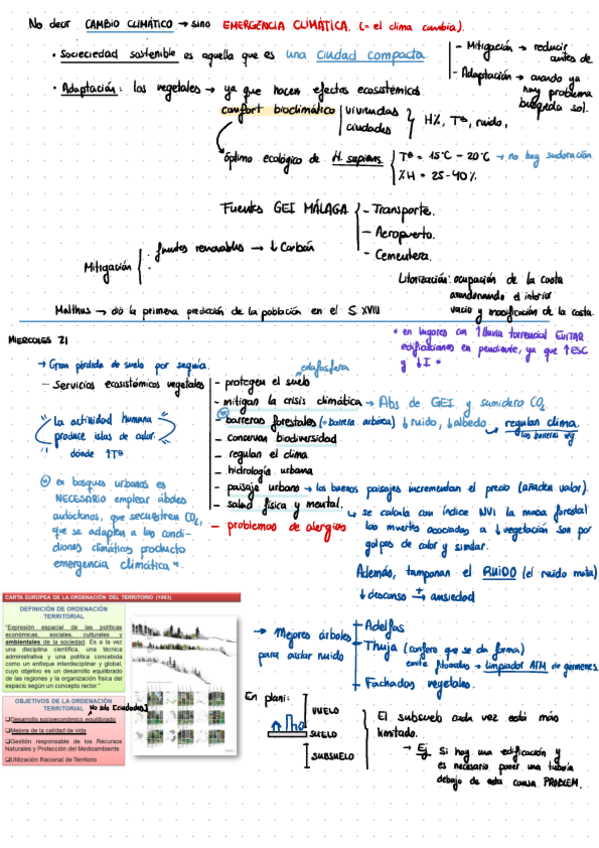 No decir CAMBIO CLIMÁTICO → sino EMERGENCIA CLIMÁTICA. (= el clima cambia).
• Socieciedad sostenible es aquella que es una ciudad compacta.
- Mitigación → reducir antes de
- Adaptación → cuando ya hay problema búsqueda sol.
• Adaptación: los vegetales → ya que hacen efectos ecosistémicos
confort bioclimático | viviendas ciudades } H%, Tª, ruido,
óptimo ecológico de H. sapiens { Tª = 15ºC - 20ºC → no hay sudoración
%H = 25-40%.
Fuentes GEI MÁLAGA { - Transporte.
- Aeropuerto.
- Cementera.
Mitigación { · fuentes renovables → ↓ Carbón
·
Litorización: ocupación de la costa
abandonando el interior
vacío y masificación de la costa.
Malthus → dió la primera predicción de la población en el S. XVIII
MIERCOLES 21
* en lugares con ↑ lluvia torrencial EVITAR
edificaciones en pendiente, ya que ↑ESC
y ↓I *
→ Gran pérdida de suelo por sequía.
- Servicios ecosistémicos vegetales
- protegen el suelo
- mitigan la crisis climática → Abs de GEI y sumidero CO₂.
- barreras forestales (= barrera arbórea) ↓ruido, ↓albedo. → regulan clima.
las barreras veg
- conservan biodiversidad
- regulan el clima
- hidrología urbana
- paisaje urbano → los buenos paisajes incrementan el precio (añaden valor).
- salud física y mental.
- problemas de alergias
"La actividad humana
produce islas de calor."
dónde ↑Tª
* en bosques urbanos es
NECESARIO emplear árboles
autóctonos, que secuestren CO₂,
que se adapten a las condi-
ciones climáticas producto
emergencia climática".
→ se calcula con índice NVI la masa forestal
las muertes asociadas a ↓ vegetación son por
golpes de calor y similar.
Además, tamponan el RUIDO (el ruido mata)
↓descanso + → ansiedad
CARTA EUROPEA DE LA ORDENACIÓN DEL TERRITORIO (1983)
DEFINICIÓN DE ORDENACIÓN
TERRITORIAL
"Expresión espacial de las políticas
económicas, sociales, culturales y
ambientales de la sociedad. Es a la vez
una disciplina científica, una técnica
administrativa y una política concebida
como un enfoque interdisciplinar y global,
cuyo objetivo es un desarrollo equilibrado
de las regiones y la organización física del
espacio según un concepto rector."
OBJETIVOS DE LA ORDENACIÓN
TERRITORIAL
No solo
❑Desarrollo socioeconómico equilibrado
❑Mejora de la calidad de vida
❑Gestión responsable de los Recursos
Naturales y Protección del Medioambiente
❑Utilización Racional de Territorio
→ Mejores árboles
para aislar ruido
- Adelfas
- Thuja (conífera que se da forma)
emite → limpiador ATM de gérmenes.
- Fachadas vegetales.
En plani:
VUELO
SUELO
SUBSUELO
El subsuelo cada vez está más
limitado.
→ Ej Si hay una edificación y
es necesario poner una tubería
debajo de esta causa PROBLEM.